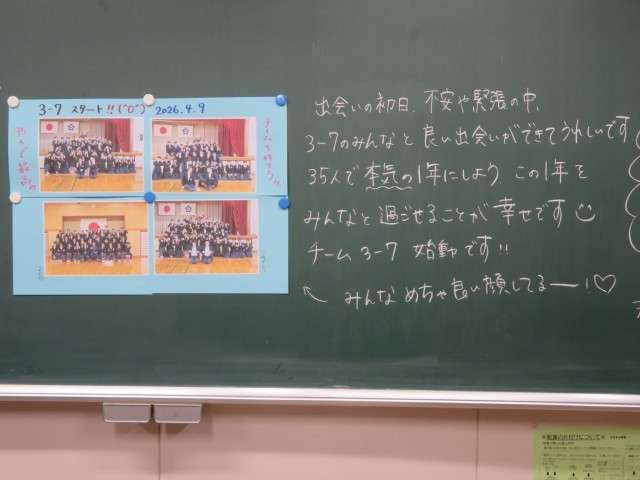 3-7 スタート!! (^o^)
2026.4.9
35人で最高の
チームを作ろう!!
出会いの初日、不安や緊張の中、
3-7のみんなと良い出会いができてうれしいです
35人で本気の1年にしよう。この1年を
みんなと過ごせることが幸せです
チーム3-7 始動です!!
← みんなめちゃ良い顔してるー!♡
給食の片付けについて